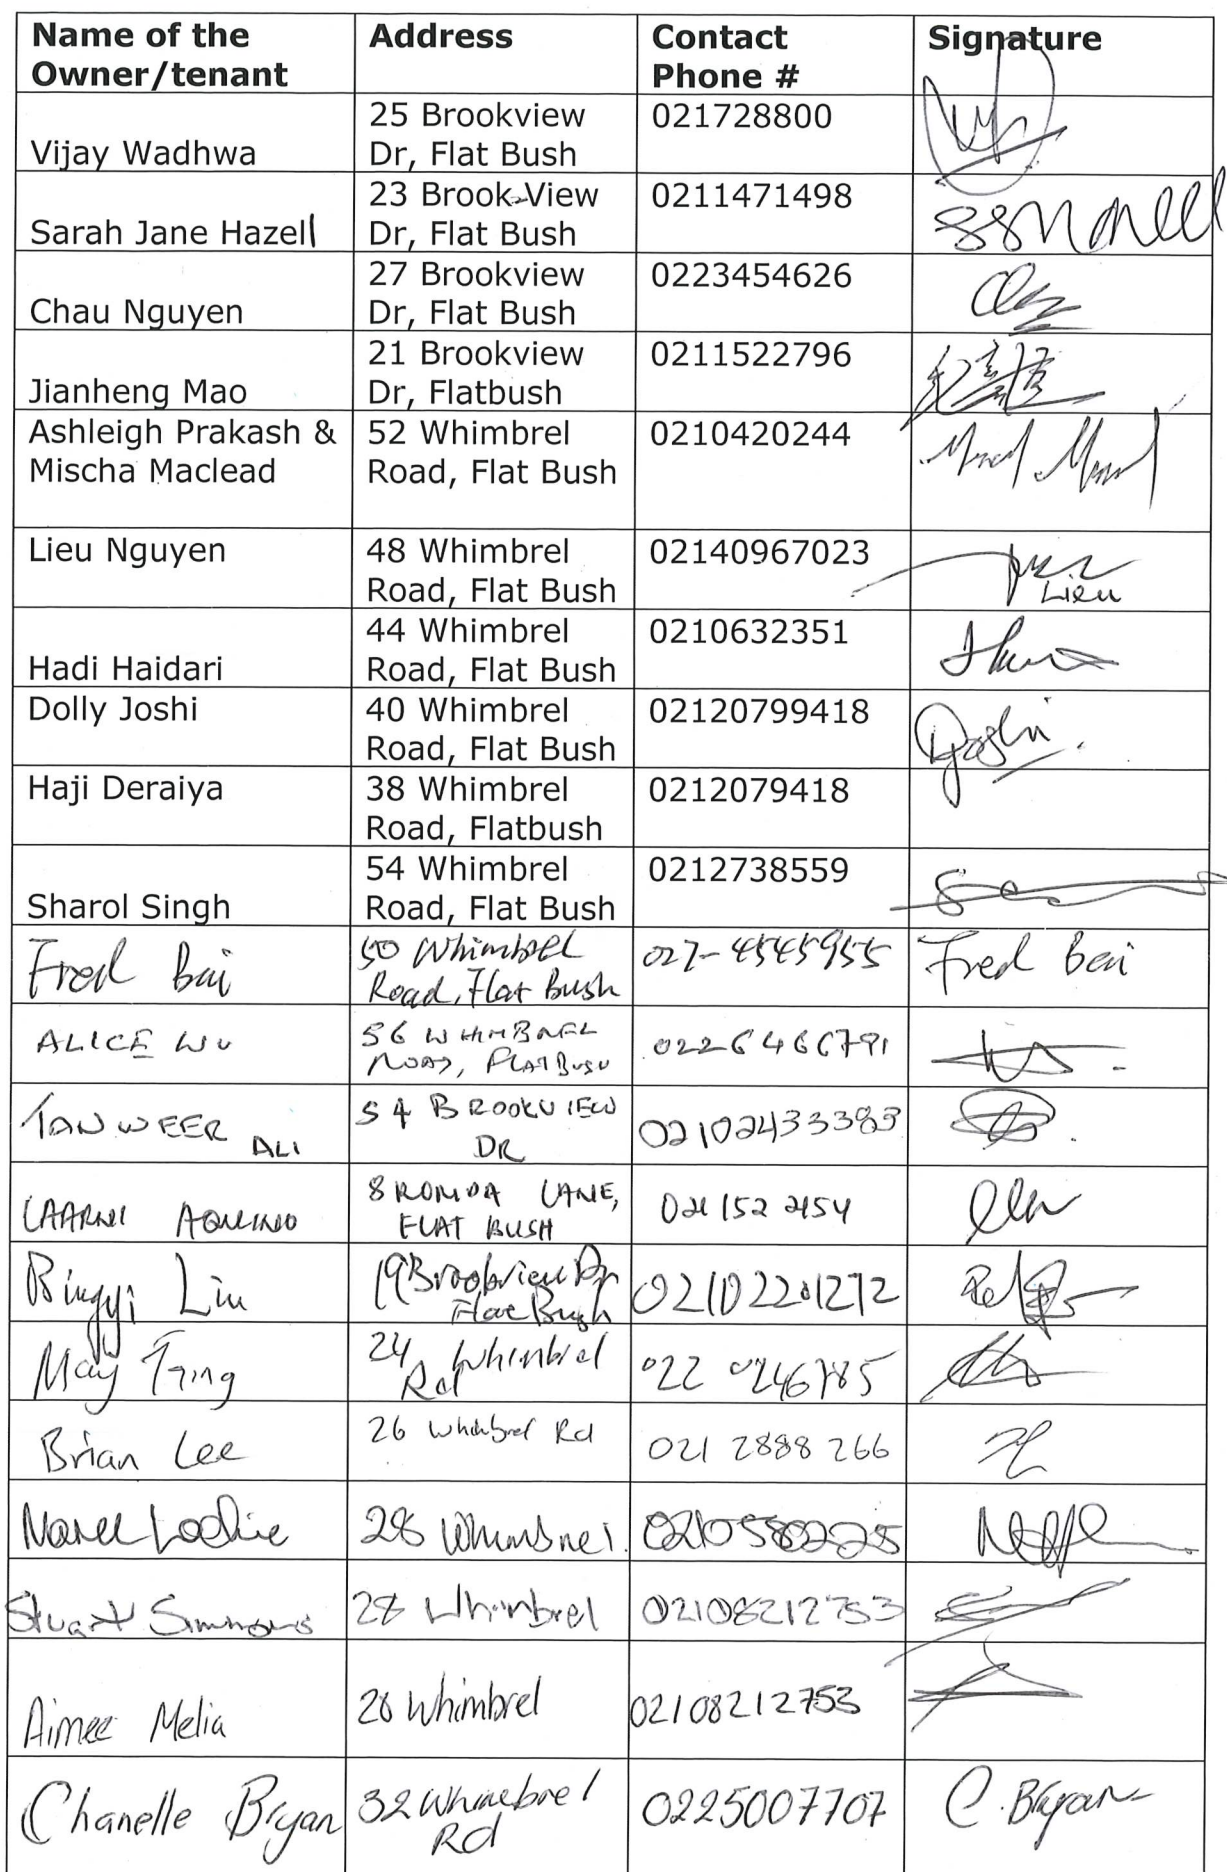 Name of the Owner/tenant Address Contact Phone # Signature
Vijay Wadhwa 25 Brookview Dr, Flat Bush 021728800
Sarah Jane Hazell 23 Brook View Dr, Flat Bush 0211471498
Chau Nguyen 27 Brookview Dr, Flat Bush 0223454626
Jianheng Mao 21 Brookview Dr, Flatbush 0211522796
Ashleigh Prakash & Mischa Maclead 52 Whimbrel Road, Flat Bush 0210420244
Lieu Nguyen 48 Whimbrel Road, Flat Bush 02140967023 Lieu
Hadi Haidari 44 Whimbrel Road, Flat Bush 0210632351
Dolly Joshi 40 Whimbrel Road, Flat Bush 02120799418 DJoshi
Haji Deraiya 38 Whimbrel Road, Flatbush 0212079418
Sharol Singh 54 Whimbrel Road, Flat Bush 0212738559
Fred Bai 50 Whimbrel Road, Flat Bush 027-4545955 Fred Bai
ALICE WU 56 WHIMBREL ROAD, FLATBUSH 0226466791
TANWEER ALI 54 BROOKVIEW DR 02102433383
LAARNI AQUINO 8 RONDA LANE, FLAT BUSH 021 152 2154
Bingyi Liu 19 Brookview Dr Flat Bush 02102201272
May 24 Whimbrel Rd 022 0246785
Brian Lee 26 Whimbrel Rd 021 2888 266
28 Whimbrel 0210580225
Stuart Simmons 28 Whimbrel 02108212753
Aimee Melia 28 Whimbrel 02108212753
Chanelle Bryan 32 Whimebrel Rd 0225007707 C. Bryan